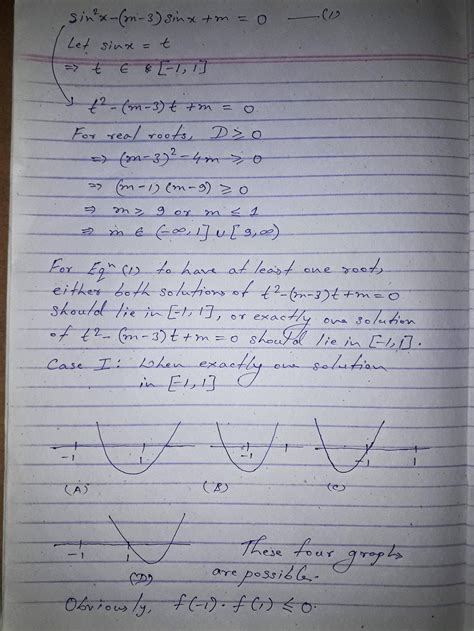 sin²x-(m-3)sinx+m = 0 —(1)
Let sinx = t
⇒ t ∈ [-1, 1]
t²-(m-3)t+m = 0
For real roots, D ≥ 0
⇒ (m-3)²-4m ≥ 0
⇒ (m-1)(m-9) ≥ 0
⇒ m ≥ 9 or m ≤ 1
⇒ m ∈ (-∞, 1] ∪ [9, ∞)
For Eqⁿ (1) to have at least one root,
either both solutions of t²-(m-3)t+m=0
should lie in [-1, 1], or exactly one solution
of t²-(m-3)t+m=0 should lie in [-1, 1].
Case I: When exactly one solution
in [-1, 1]
-1 1 -1 1 -1 1
(A) (B) (C)
-1 1
(D)
These four graphs
are possible.
Obviously, f(-1)·f(1) ≤ 0.